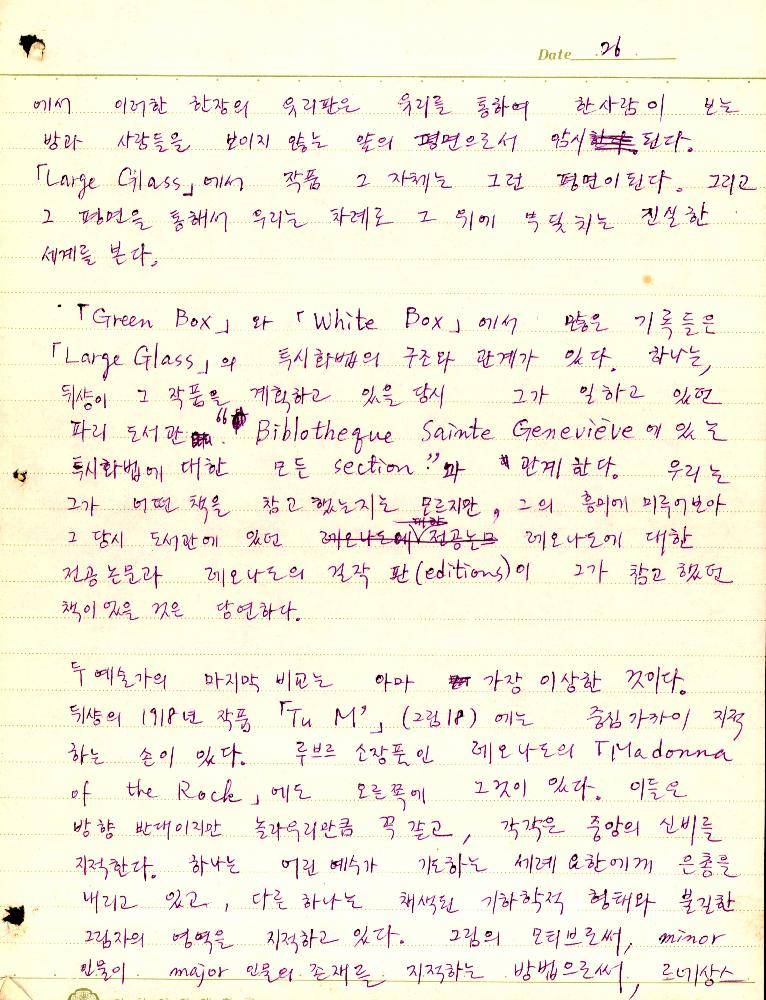 Date 26
에서 이러한 한장의 유리판은 유리를 통하여 한사람이 보는
방과 사람들을 보이지 않는 앞의 평면으로서 암시된다.
「Large Glass」에서 작품 그 자체는 그런 평면이 된다. 그리고
그 평면을 통해서 우리는 차례로 그 위에 부딪치는 진실한
세계를 본다.
「Green Box」와 「White Box」에서 많은 기록들은
「Large Glass」의 투시화법의 구조와 관계가 있다. 하나는,
뒤샹이 그 작품을 계획하고 있을 당시 그가 일하고 있던
파리 도서관 “Biblotheque Sainte Geneviève에 있는
투시화법에 대한 모든 section”과 관계한다. 우리는
그가 어떤 책을 참고했는지는 모르지만, 그의 흥미에 미루어보아
그 당시 도서관에 있던 레오나도에 대한
전공논문과 레오나도의 걸작 판(editions)이 그가 참고했던
책이었을 것은 당연하다.
두 예술가의 마지막 비교는 아마 가장 이상한 것이다.
뒤샹의 1918년 작품 「Tu M'」(그림18)에는 중심 가까이 지적
하는 손이 있다. 루브르 소장품인 레오나도의 「Madonna
of the Rock」에도 오른쪽에 그것이 있다. 이들은
방향 반대이지만 놀라우리만큼 꼭 같고, 각각은 중앙의 신비를
지적한다. 하나는 어린 예수가 기도하는 세례 요한에게 은총을
내리고 있고, 다른 하나는 채색된 기하학적 형태와 불길한
그림자의 영역을 지적하고 있다. 그림의 모티브로써, minor
인물이 major 인물의 존재를 지적하는 방법으로써, 르네상스